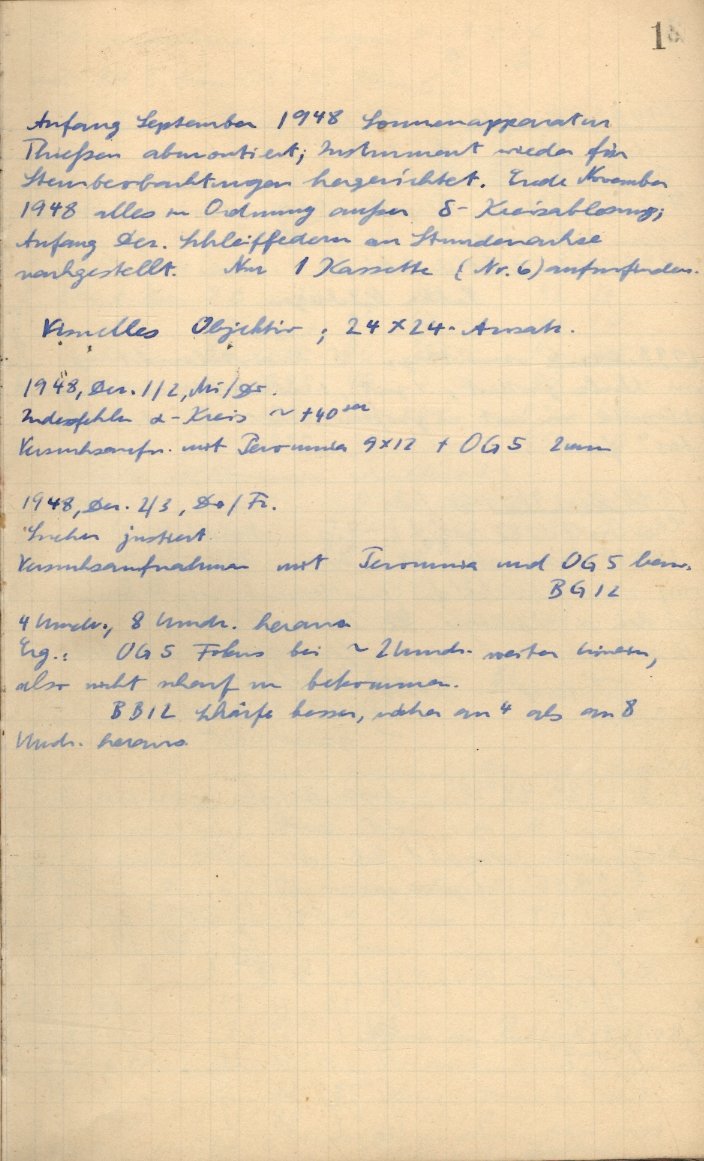 1
Anfang September 1948 Sonnenapparatur
Thießen abmontiert; Instrument wieder für
Sternbeobachtungen hergerichtet. Ende November
1948 alles in Ordnung außer δ-Kreisablesung;
Anfang Dez. Schleiffedern an Stundenachse
nachgestellt. Nur 1 Kassette (Nr. 6) aufzufinden.
Visuelles Objektiv; 24×24-Ansatz.
1948, Dez. 1/2, Mi/Do.
Indexfehler α-Kreis ~ +40 sec
Versuchsaufn. mit Peromnia 9×12 + OG5
1948, Dez. 2/3, Do/Fr.
Sucher justiert.
Versuchsaufnahmen mit Peromnia und OG5 bezw.
BG12
4 Umdr., 8 Umdr. heraus
Erg.: OG5 Fokus bei ~ 2 Umdr. weiter hinein,
also nicht scharf zu bekommen.
BB12 Schärfe besser, näher an 4 als an 8
Umdr. heraus.